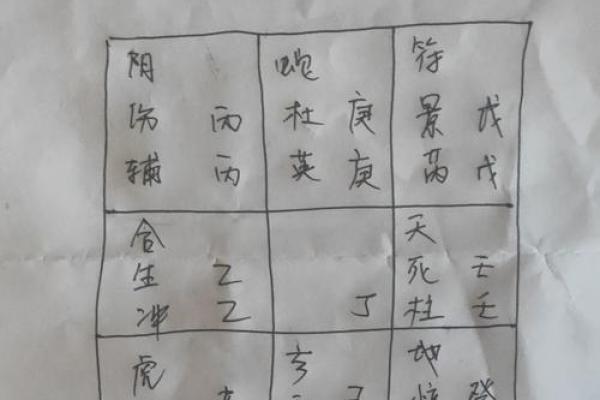 阴 蛇 符
伤 丙 杜 庚 景 戊
辅 丙 英 庚 芮 戊
合 天
生 乙 死 壬
冲 乙 丁 柱 壬
虎 玄 地
惊 癸